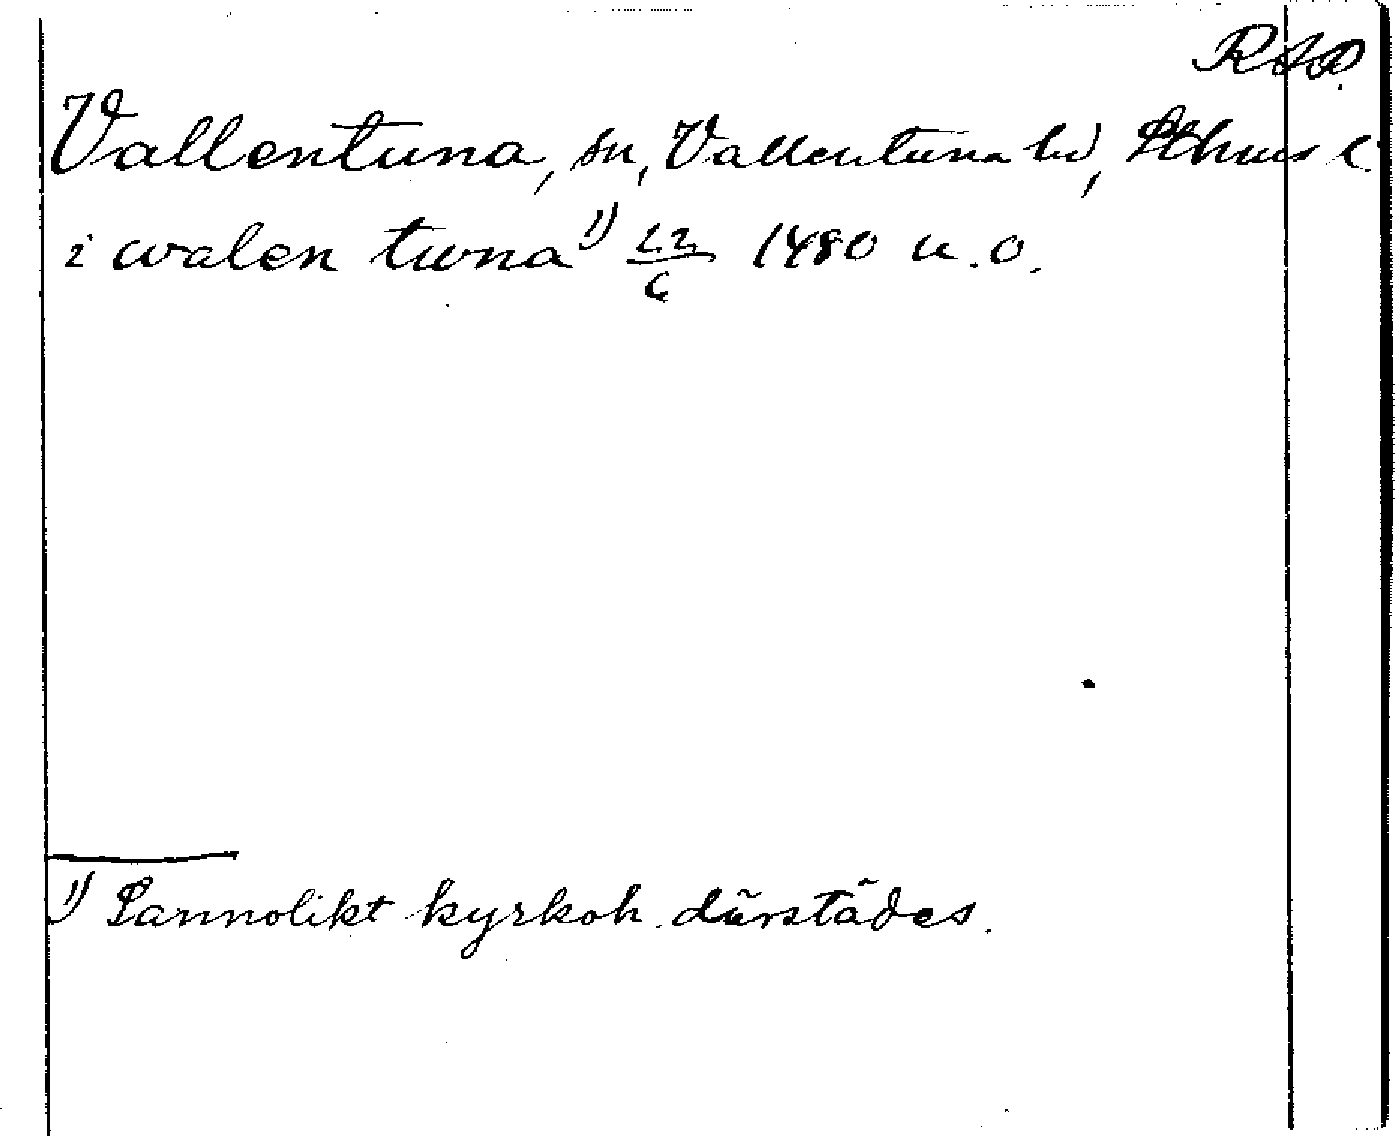 RAP.
Vallentuna, sn, Vallentuna hd, Sthms l
i walen tuna 1) 22/6 1480 u.o.
1) Sannolikt kyrkoh. därstädes.